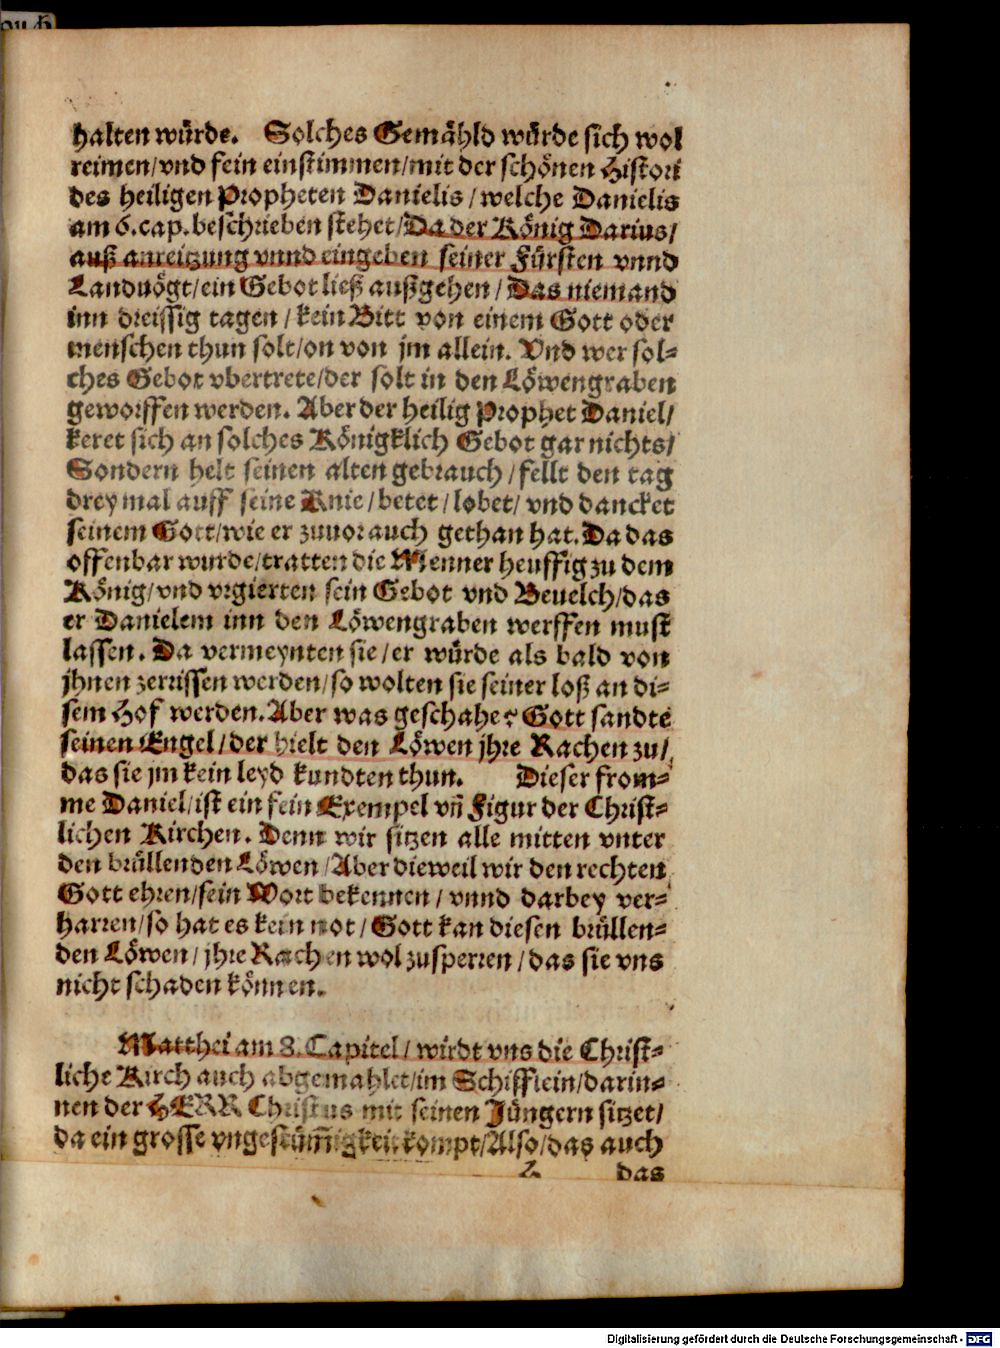 halten würde. Solches Gemähld würde sich wol
reimen/vnd fein einstimmen/mit der schönen Histori
des heiligen Propheten Danielis/welche Danielis
am 6.cap.beschrieben stehet/Da der König Darius/
auß anreitzung vnnd eingeben seiner Fürsten vnnd
Landuögt/ein Gebot ließ außgehen/Das niemand
inn dreissig tagen/kein Bitt von einem Gott oder
menschen thun solt/on von jm allein. Vnd wer sol-
ches Gebot vbertrete/der solt in den Löwengraben
geworffen werden. Aber der heilig Prophet Daniel/
keret sich an solches Königklich Gebot gar nichts/
Sondern helt seinen alten gebrauch/fellt den tag
drey mal auff seine Knie/betet/lobet/vnd dancket
seinem Gott/wie er zuuor auch gethan hat. Da das
offenbar wurde/tratten die Menner heuffig zu dem
König/vnd vrgierten sein Gebot vnd Beuelch/das
er Danielem inn den Löwengraben werffen must
lassen. Da vermeynten sie/er würde als bald von
jhnen zerrissen werden/so wolten sie seiner loß an di-
sem Hof werden. Aber was geschahe? Gott sandte
seinen Engel/der hielt den Löwen jhre Rachen zu/
das sie jm kein leyd kundten thun. Dieser from-
me Daniel/ist ein fein Exempel vn̄ Figur der Christ-
lichen Kirchen. Denn wir sitzen alle mitten vnter
den brüllenden Löwen/Aber dieweil wir den rechten
Gott ehren/sein Wort bekennen/vnnd darbey ver-
harren/so hat es kein not/Gott kan diesen brüllen-
den Löwen/jhre Rachen wol zusperren/das sie vns
nicht schaden können.
Matthei am 8. Capitel/wirdt vns die Christ-
liche Kirch auch abgemahlet/im Schifflein/darin-
nen der HERR Christus mit seinen Jüngern sitzet/
da ein grosse vngestüm̄igkeit kompt/Also/das auch
das
Digitalisierung gefördert durch die Deutsche Forschungsgemeinschaft - DFG